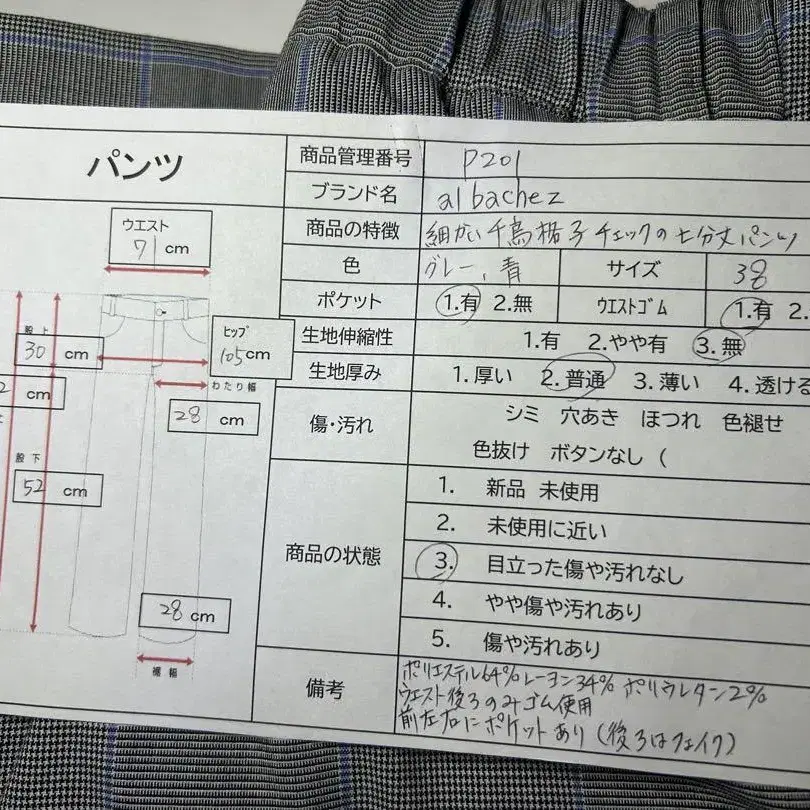 パンツ
商品管理番号 P201
ブランド名 al bachez
商品の特徴 細かい千鳥格子チェックの七分丈パンツ
色 グレー、青 サイズ 38
ポケット 1.有 2.無 ウエストゴム 1.有 2.
生地伸縮性 1.有 2.やや有 3.無
生地厚み 1.厚い 2.普通 3.薄い 4.透ける
傷・汚れ シミ 穴あき ほつれ 色褪せ
色抜け ボタンなし (
商品の状態
1. 新品 未使用
2. 未使用に近い
3. 目立った傷や汚れなし
4. やや傷や汚れあり
5. 傷や汚れあり
備考 ポリエステル64% レーヨン34% ポリウレタン2%
ウエスト後ろのみゴム使用
前左右にポケットあり(後ろはフェイク)
ウエスト
71 cm
股上
30 cm
ヒップ
105cm
わたり幅
28 cm
2 cm
股下
52 cm
28 cm
裾幅